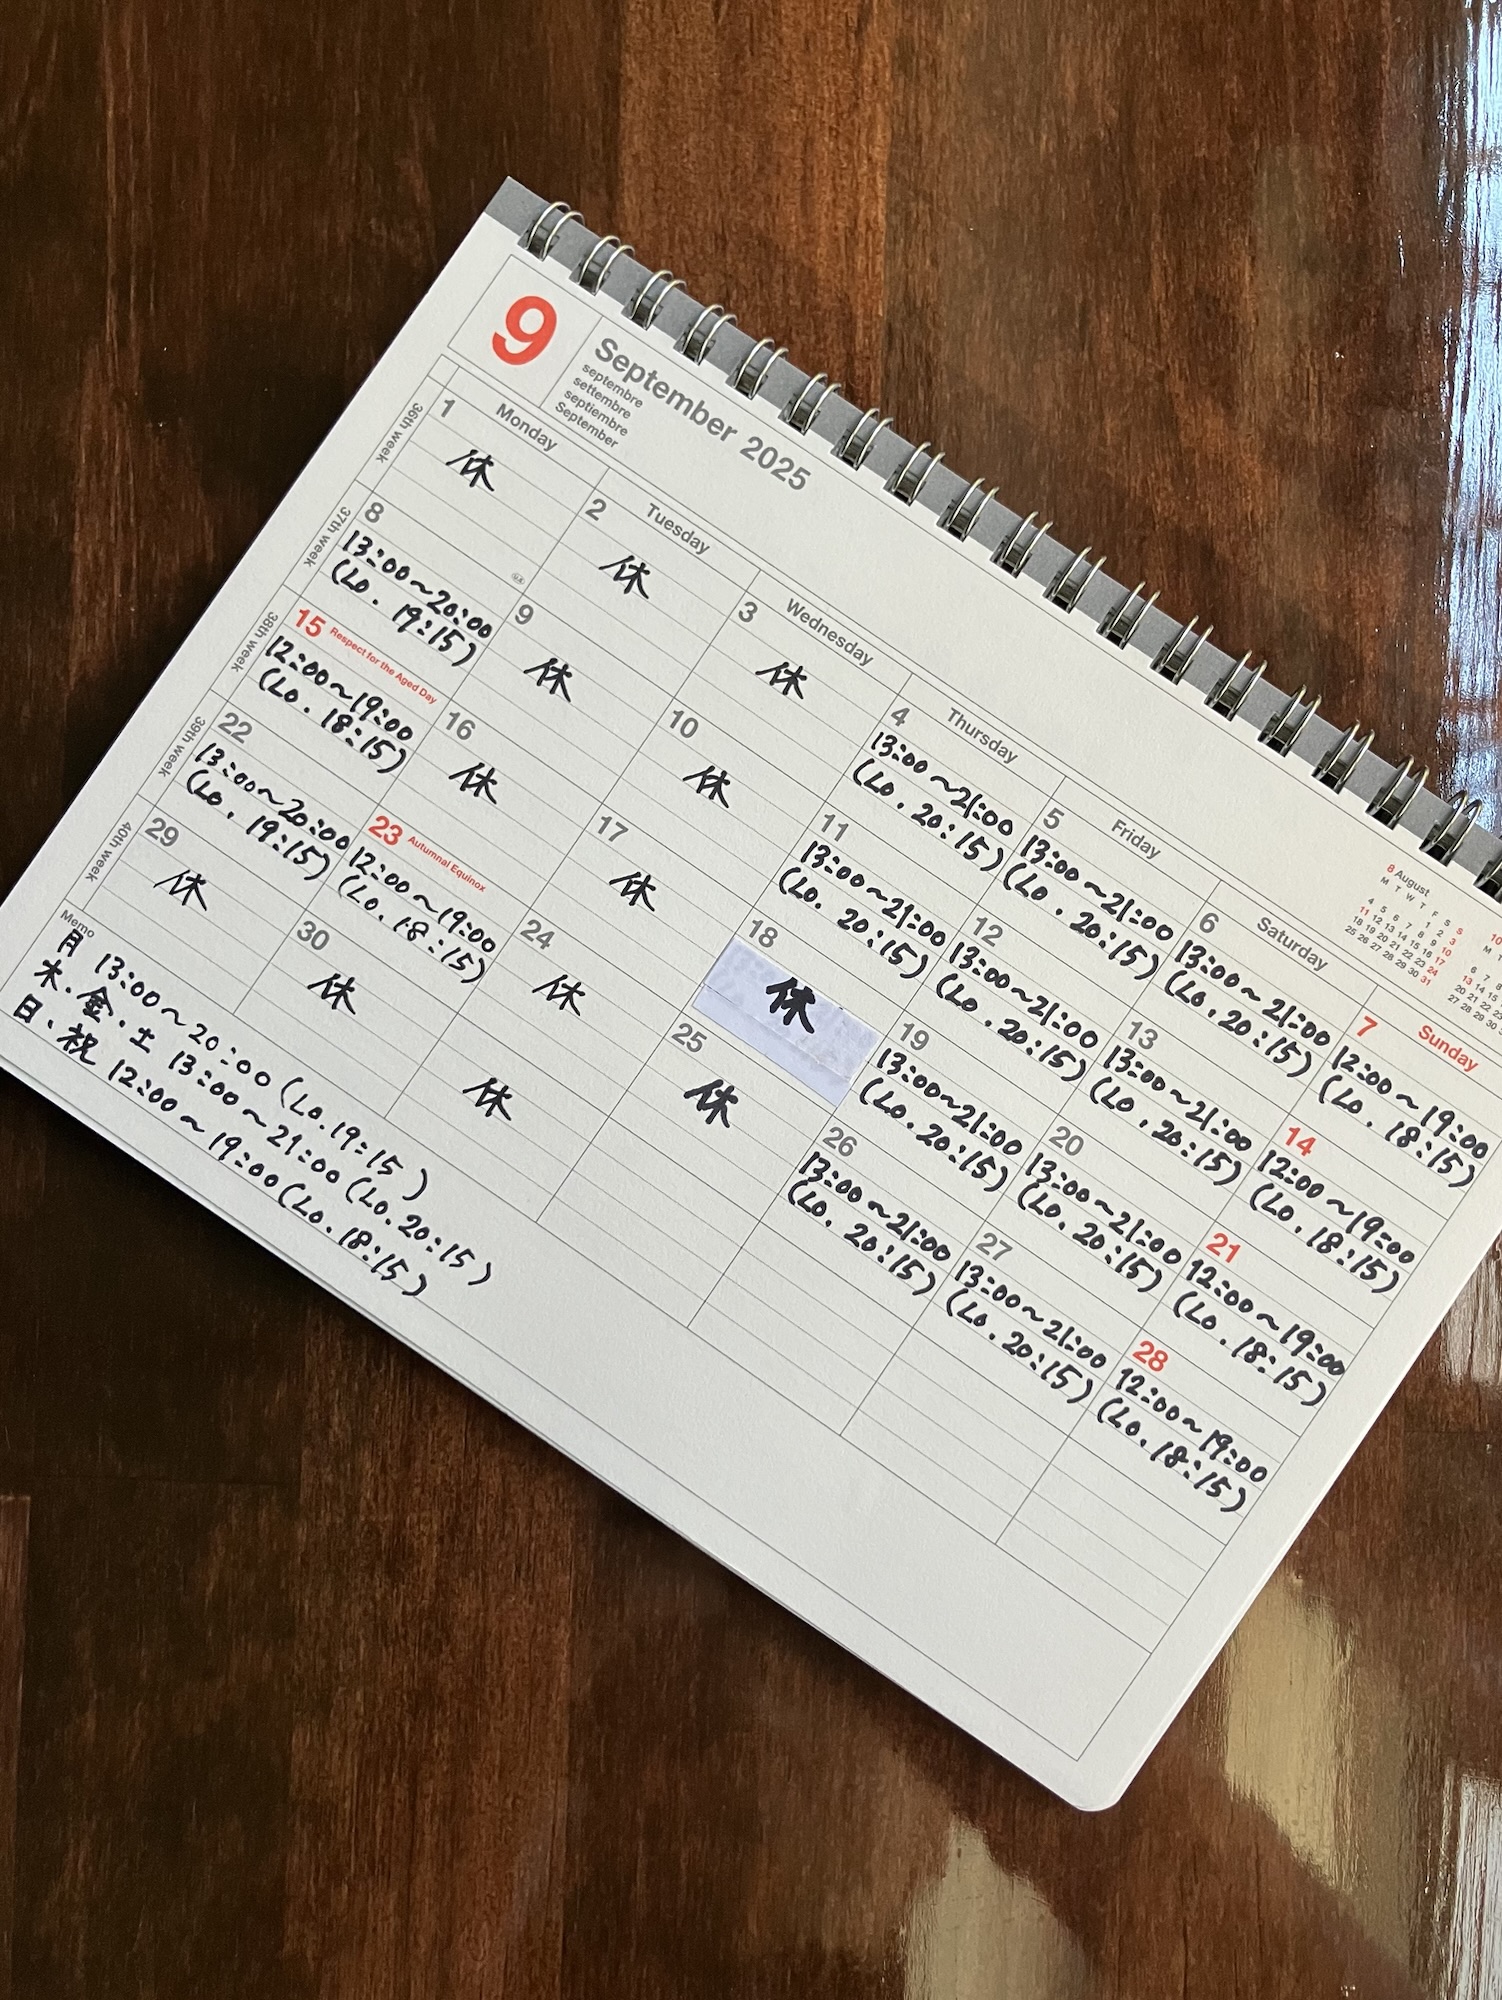 9
September 2025
septembre
settembre
septiembre
September
8 August
M T W T F S S
1 2 3
4 5 6 7 8 9 10
11 12 13 14 15 16 17
18 19 20 21 22 23 24
25 26 27 28 29 30 31
10
Monday
Tuesday
Wednesday
Thursday
Friday
Saturday
Sunday
36th week
1
休
2
休
3
休
4
13:00~21:00
(Lo. 20:15)
5
13:00~21:00
(Lo. 20:15)
6
13:00~21:00
(Lo. 20:15)
7
12:00~19:00
(Lo. 18:15)
37th week
8
13:00~20:00
(Lo. 19:15)
9
休
10
休
11
13:00~21:00
(Lo. 20:15)
12
13:00~21:00
(Lo. 20:15)
13
13:00~21:00
(Lo. 20:15)
14
12:00~19:00
(Lo. 18:15)
38th week
15 Respect for the Aged Day
12:00~19:00
(Lo. 18:15)
16
休
17
休
18
休
19
13:00~21:00
(Lo. 20:15)
20
13:00~21:00
(Lo. 20:15)
21
12:00~19:00
(Lo. 18:15)
39th week
22
13:00~20:00
(Lo. 19:15)
23 Autumnal Equinox
12:00~19:00
(Lo. 18:15)
24
休
25
休
26
13:00~21:00
(Lo. 20:15)
27
13:00~21:00
(Lo. 20:15)
28
12:00~19:00
(Lo. 18:15)
40th week
29
休
30
休
休
Memo
月 13:00~20:00 (Lo. 19:15)
木・金・土 13:00~21:00 (Lo. 20:15)
日・祝 12:00~19:00 (Lo. 18:15)